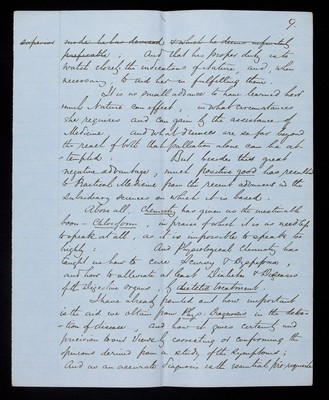 9.
mode he has devised, & which he deems infinitely
preferable; And that his proper duty is to
watch closely the indications of Nature, and, when
necessary, to aid her in fulfilling them.
It is no small advance to have learned how
much Nature can effect; in what circumstances
she requires and can gain by the assistance of
Medicine; and what diseases are so far beyond
the reach of both that palliation alone can be at-
-tempted. But besides this great
negative advantage, much positive good has resulted
to Practical Medicine from the recent advances in the
subsidiary sciences on which it is based.
Above all, Chemistry has given us the inestimable
boon - Chloroform, in praise of which it is as needless
to speak at all, as it is impossible to speak too
highly: And Physiological Chemistry has
taught us how to cure Scurvy & Dyspepsia,
and how to alleviate at least Diabetes & Diseases
of the Digestive organs, by dietetic treatment.
I have already pointed out how important
is the aid we obtain from Phys: Diagnosis in the detec-
-tion of disease, and how it gives certainty and
precision to our views by correcting or confirming the
opinions derived from a study of the symptoms;
And as an accurate Diagnosis is the essential pre-requisite